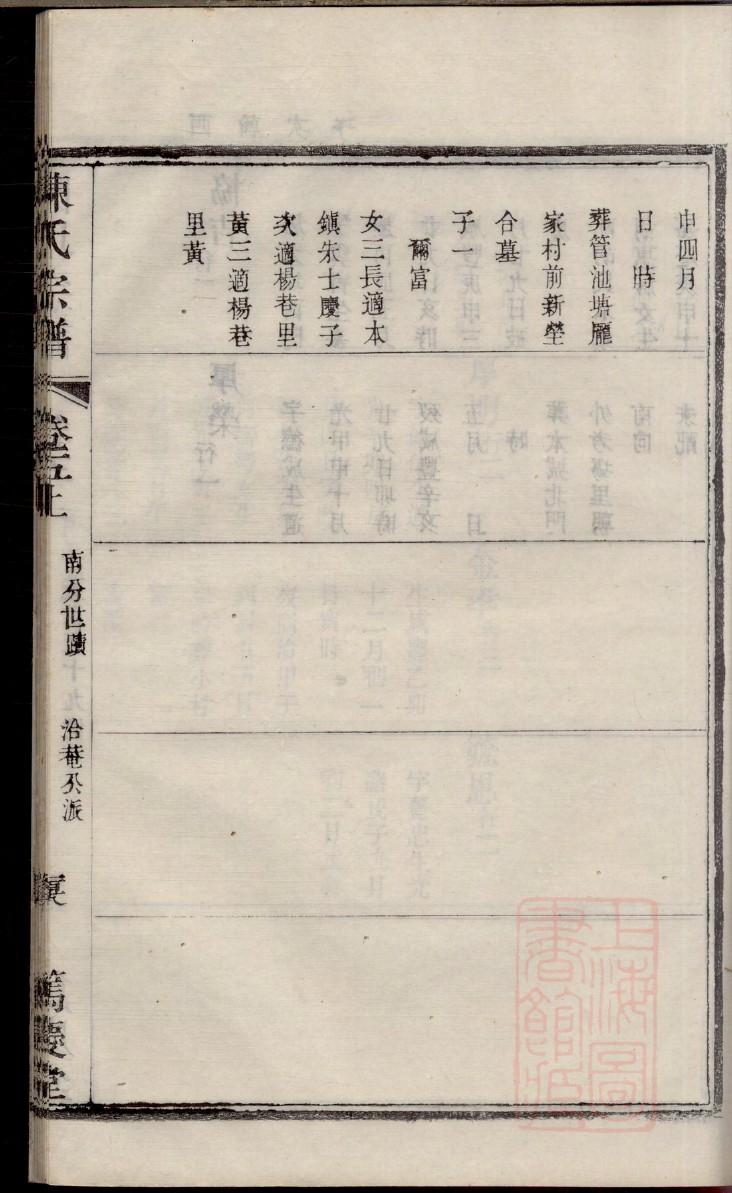 申四月
日　時
葬管池塘龎
家村前新塋
合墓
子一
爾富
女三長適本
鎮朱士慶子
次適楊巷里
黃三適楊巷
里黃
陳氏宗譜
卷五上
南分世蹟
洽菴公派
篤慶堂
上海圖
書館藏